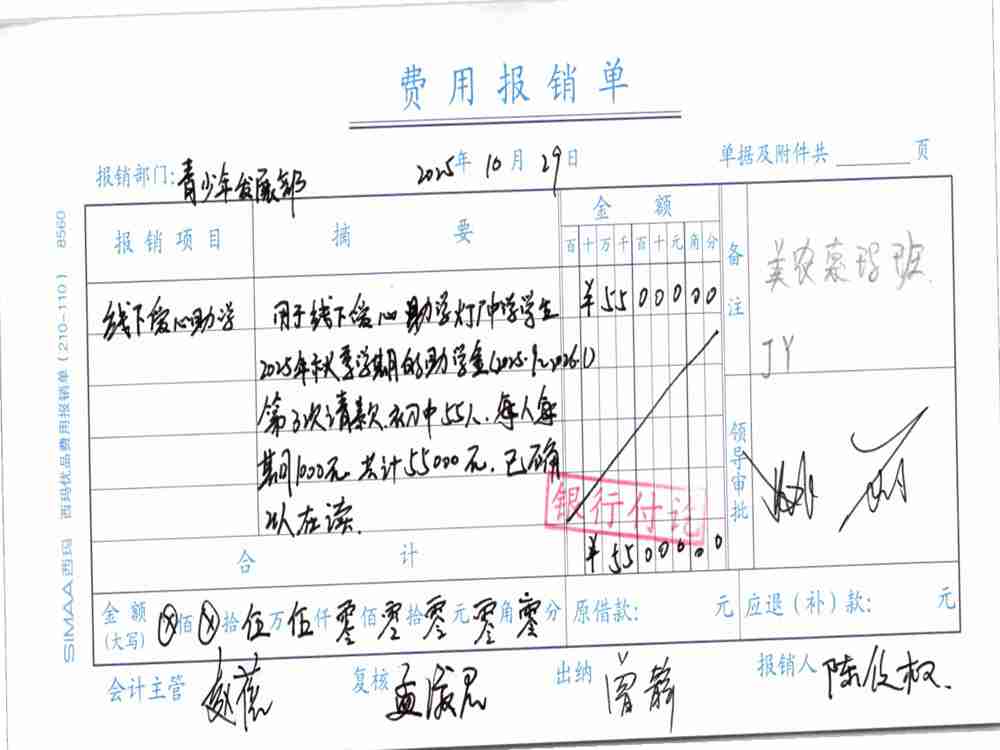 费用报销单
报销部门:青少年发展部 2025年10月29日 单据及附件共 页
报销项目 摘要 金额 备注
百十万千百十元角分
美农慕玛班
JY
线下爱心助学 用于线下爱心助学灯冲学学生 ¥5500000
2025年秋季学期的助学金(2025.9~2026.1)
第3次请款.初中55人.每人每
期1000元 共计55000元.已确
认在读.
银行付讫
领导审批
合计 ¥5500000
金额(大写) ⊗佰⊗拾伍万伍仟零佰零拾零元零角零分 原借款: 元 应退(补)款: 元
会计主管 复核 孟淑思 出纳 曾静 报销人 陈欣权.
SIMAA西玛 西玛优品费用报销单(210-110) 8560